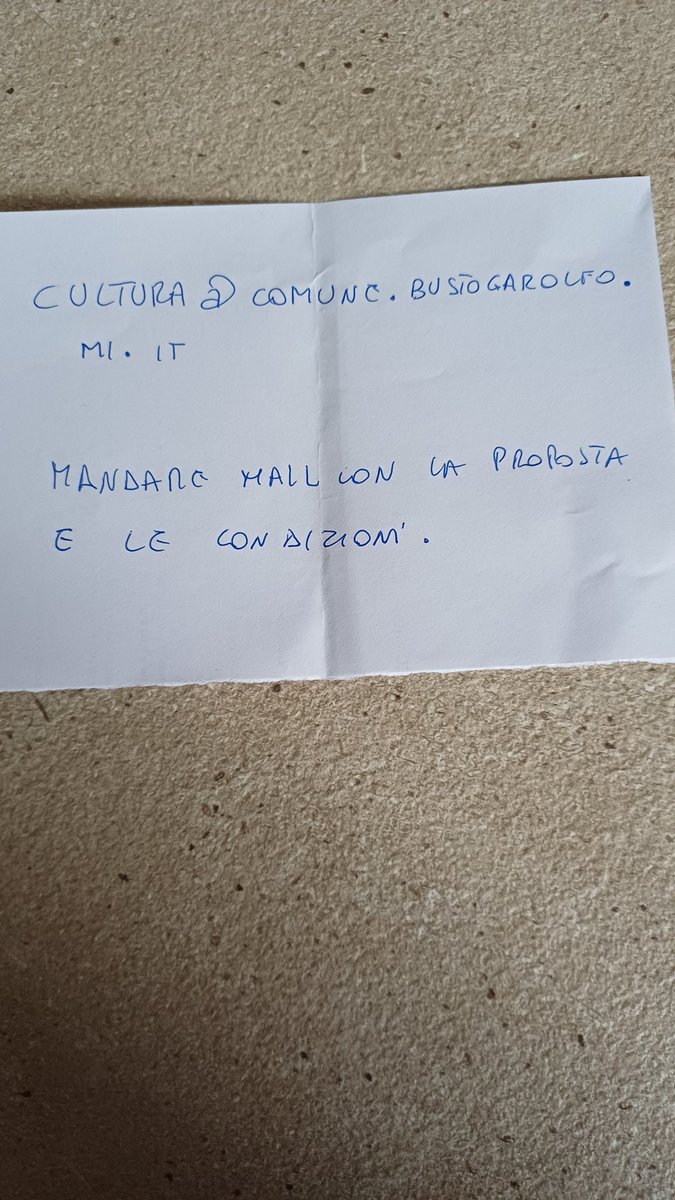 CULTURA@COMUNE.BUSTOGAROLFO.
MI.IT
MANDARE MAIL CON LA PROPOSTA
E LE CONDIZIONI.